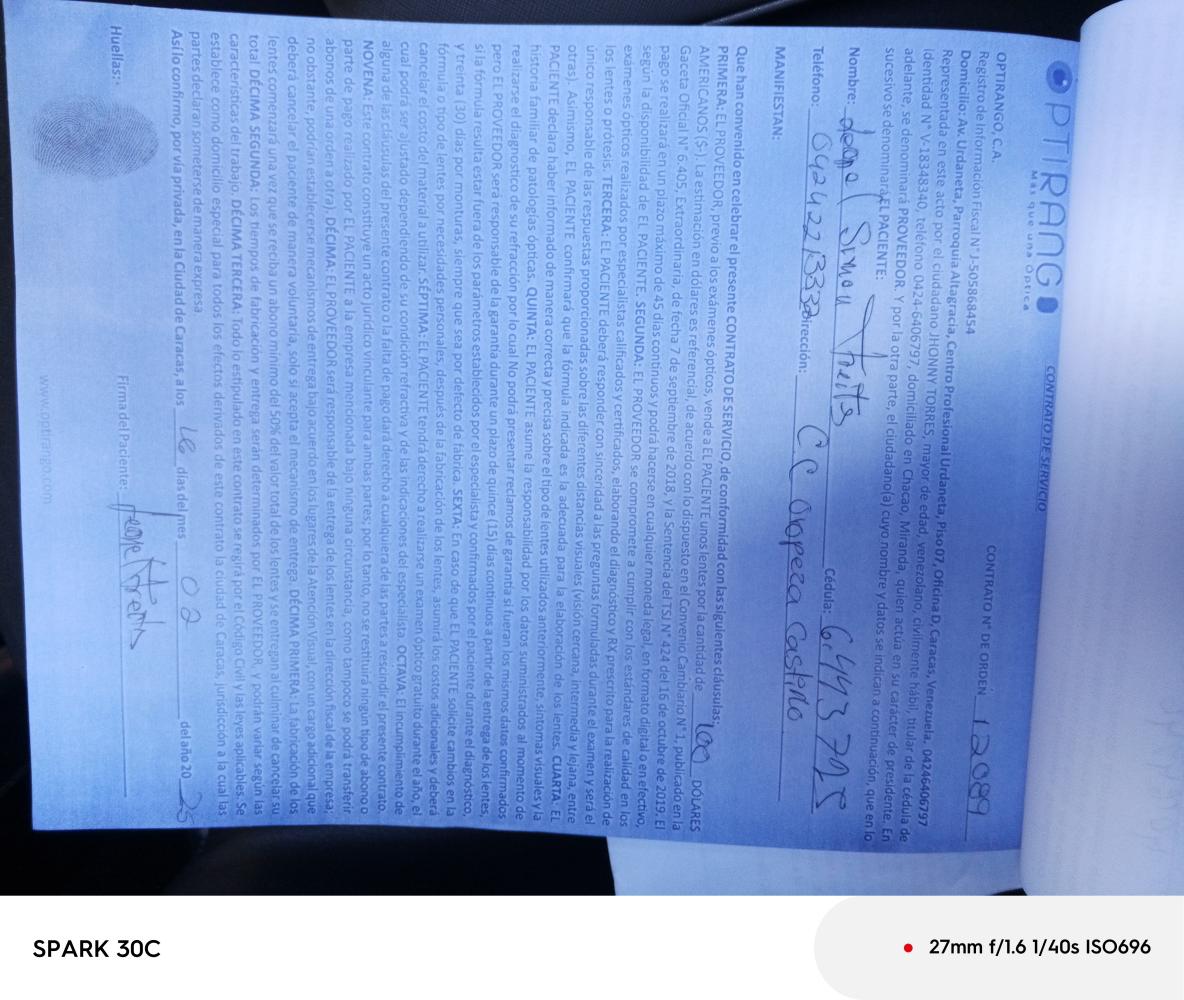 OPTIRANGO
Más que una Óptica
CONTRATO DE SERVICIO
CONTRATO N° DE ORDEN 12089
OPTIRANGO, C.A.
Registro de Información Fiscal N° J-505868454
Domicilio: Av. Urdaneta, Parroquia Altagracia, Centro Profesional Urdaneta, Piso 07, Oficina D, Caracas, Venezuela. 04246406797
Representada en este acto por el ciudadano JHONNY TORRES, mayor de edad, venezolano, civilmente hábil, titular de la cédula de
identidad N° V-18348340, teléfono 0424-6406797, domiciliado en Chacao, Miranda, quien actúa en su carácter de presidente. En
adelante, se denominará PROVEEDOR. Y por la otra parte, el ciudadano(a) cuyo nombre y datos se indican a continuación, que en lo
sucesivo se denominará EL PACIENTE:
Nombre: Simon Cédula: 6.443725
Teléfono: 04242213332 Dirección: CC Oropeza Castillo
MANIFIESTAN:
Que han convenido en celebrar el presente CONTRATO DE SERVICIO, de conformidad con las siguientes cláusulas:
PRIMERA: EL PROVEEDOR, previo a los exámenes ópticos, vende a EL PACIENTE unos lentes por la cantidad de 100 DÓLARES
AMERICANOS ($). La estimación en dólares es referencial, de acuerdo con lo dispuesto en el Convenio Cambiario N° 1, publicado en la
Gaceta Oficial N° 6.405, Extraordinaria, de fecha 7 de septiembre de 2018, y la Sentencia del TSJ N° 424 del 16 de octubre de 2019. El
pago se realizará en un plazo máximo de 45 días continuos y podrá hacerse en cualquier moneda legal, en formato digital o en efectivo,
según la disponibilidad de EL PACIENTE. SEGUNDA: EL PROVEEDOR se compromete a cumplir con los estándares de calidad en los
exámenes ópticos realizados por especialistas calificados y certificados, elaborando el diagnóstico y RX prescrito para la realización de
los lentes o prótesis. TERCERA: EL PACIENTE deberá responder con sinceridad a las preguntas formuladas durante el examen y será el
único responsable de las respuestas proporcionadas sobre las diferentes distancias visuales (visión cercana, intermedia y lejana, entre
otras). Asimismo, EL PACIENTE confirmará que la fórmula indicada es la adecuada para la elaboración de los lentes. CUARTA. EL
PACIENTE declara haber informado de manera correcta y precisa sobre el tipo de lentes utilizados anteriormente, síntomas visuales y la
historia familiar de patologías ópticas. QUINTA: EL PACIENTE asume la responsabilidad por los datos suministrados al momento de
realizarse el diagnostico de su refracción por lo cual No podrá presentar reclamos de garantía si fueran los mismos datos confirmados
pero EL PROVEEDOR será responsable de la garantía durante un plazo de quince (15) días continuos a partir de la entrega de los lentes,
si la fórmula resulta estar fuera de los parámetros establecidos por el especialista y confirmados por el paciente durante el diagnóstico,
y treinta (30) días por monturas, siempre que sea por defecto de fábrica. SEXTA. En caso de que EL PACIENTE solicite cambios en la
fórmula o tipo de lentes por necesidades personales, después de la fabricación de los lentes, asumirá los costos adicionales y deberá
cancelar el costo del material a utilizar. SÉPTIMA: EL PACIENTE tendrá derecho a realizarse un examen óptico gratuito durante el año, el
cual podrá ser ajustado dependiendo de su condición refractiva y de las indicaciones del especialista. OCTAVA: El incumplimiento de
alguna de las cláusulas del presente contrato o la falta de pago dará derecho a cualquiera de las partes a rescindir el presente contrato.
NOVENA: Este contrato constituye un acto jurídico vinculante para ambas partes; por lo tanto, no se restituirá ningún tipo de abono o
parte de pago realizado por EL PACIENTE a la empresa mencionada bajo ninguna circunstancia, como tampoco se podrá transferir
abonos de una orden a otra). DÉCIMA: EL PROVEEDOR será responsable de la entrega de los lentes en la dirección fiscal de la empresa;
no obstante, podrían establecerse mecanismos de entrega bajo acuerdo en los lugares de la Atención Visual, con un cargo adicional que
deberá cancelar el paciente de manera voluntaria, solo si acepta el mecanismo de entrega. DÉCIMA PRIMERA: La fabricación de los
lentes comenzará una vez que se reciba un abono mínimo del 50% del valor total de los lentes y se entregan al culminar de cancelar su
total DÉCIMA SEGUNDA: Los tiempos de fabricación y entrega serán determinados por EL PROVEEDOR, y podrán variar según las
características del trabajo. DÉCIMA TERCERA: Todo lo estipulado en este contrato se regirá por el Código Civil y las leyes aplicables. Se
establece como domicilio especial para todos los efectos derivados de este contrato la ciudad de Caracas, jurisdicción a la cual las
partes declaran someterse de manera expresa.
Así lo confirmo, por vía privada, en la Ciudad de Caracas, a los 16 días del mes 02 del año 20 25
Huellas: Firma del Paciente:
www.optirango.com
SPARK 30C
27mm f/1.6 1/40s ISO696